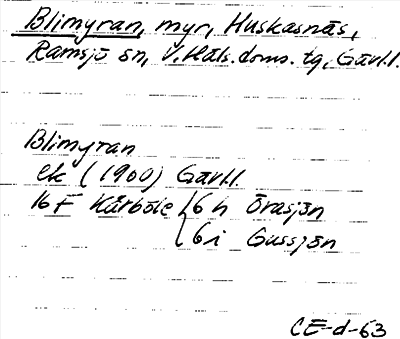 Blimyran, myr, Huskasnäs,
Ramsjö sn, V.Häls.doms.tg, Gävl.l.
Blimyran
ek (1960) Gävl.l.
16F Kårböle 6h Örasjön
6i Gussjön
CE-d-63